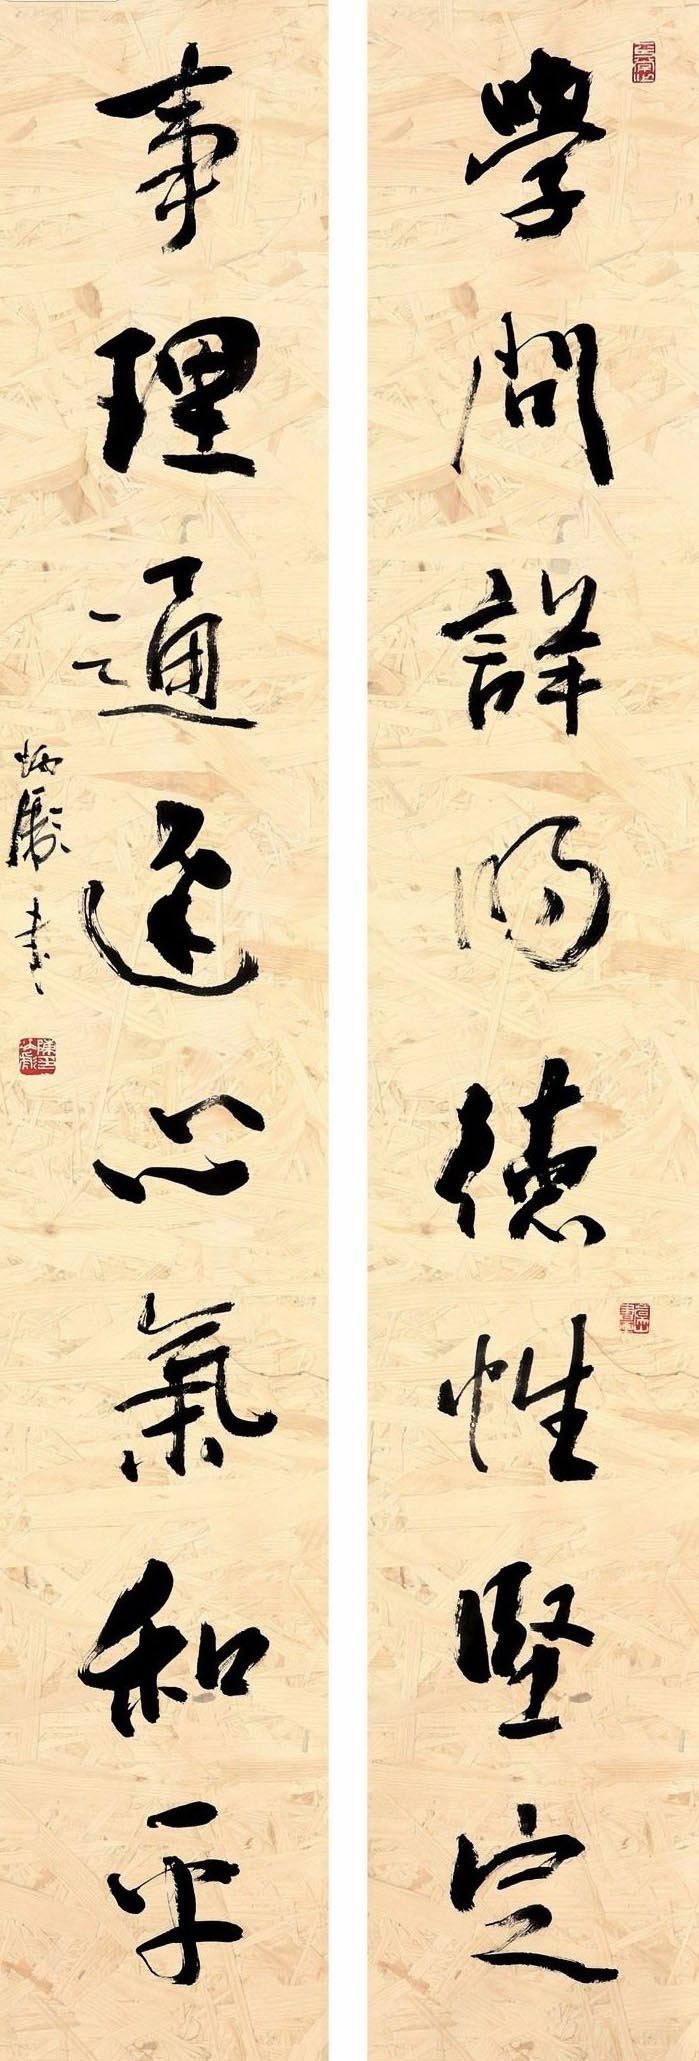 學問詳明德性堅定
事理通達心氣和平
炳勳書